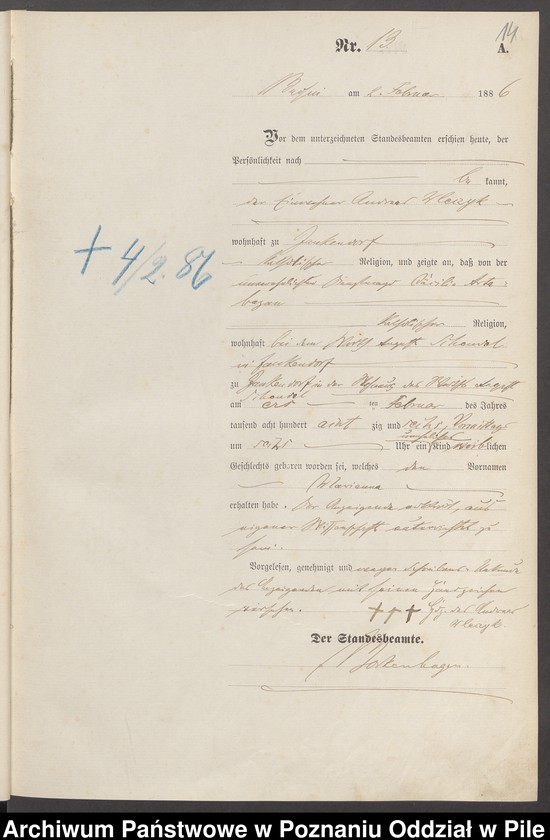 14
Nr. 13
A.
am 2. Februar 1886
Vor dem unterzeichneten Standesbeamten erschien heute, der
Persönlichkeit nach
be kannt,
der Einwohner Andreas
wohnhaft zu Jankendorf
katholischer Religion, und zeigte an, daß von der
unverehelichten
katholischer Religion,
wohnhaft bei dem Wirth August
in Jankendorf
zu Jankendorf in der Wohnung des Wirths August
am ten Februar des Jahres
tausend acht hundert acht zig und sechs, Vormittags
um sechs Uhr ein uneheliches Kind weiblichen
Geschlechts geboren worden sei, welches den Vornamen
Marianna
erhalten habe. Der Anzeigende erklärt, aus
eigener Wissenschaft unterrichtet zu
sein.
Vorgelesen, genehmigt und wegen Schreibens Unkunde
des Anzeigenden mit seinem Handzeichen
versehen. +++ Hdz. des Andreas
Der Standesbeamte.
+ 4/2. 86
Archiwum Państwowe w Poznaniu Oddział w Pile